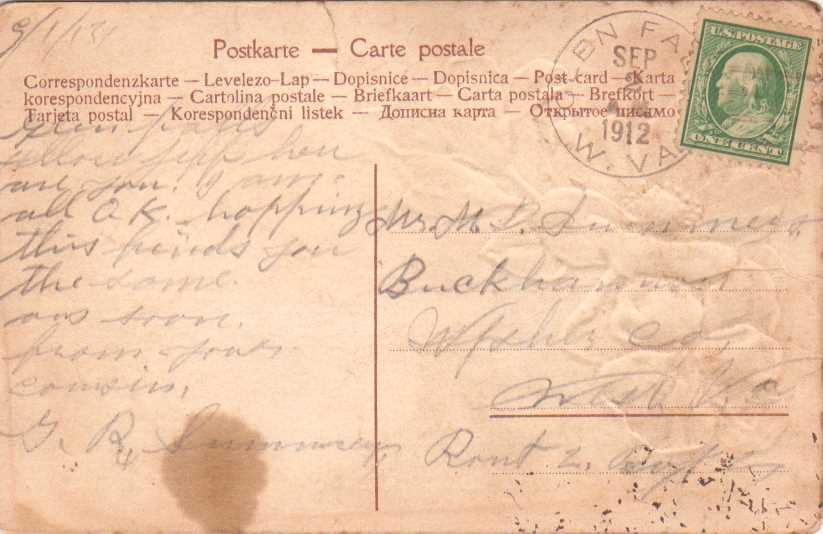 Postkarte — Carte postale
Correspondenzkarte — Levelezo-Lap — Dopisnice — Dopisnica — Post card — Karta
korespondencyjna — Cartolina postale — Briefkaart — Carta postala — Brefkort —
Tarjeta postal — Korespondenční listek — Дописна карта — Открытое письмо
GLEN FAL
SEP
1912
W. VA.
U.S. POSTAGE
ONE CENT
Glen Falls
are you. I am
all O.K. hopping
this finds you
the same.
ans soon.
from your
cousin,
G. R. Summers
Mr. M. D. Summers
Buckhannon
Co.
West Va
Rout 2,